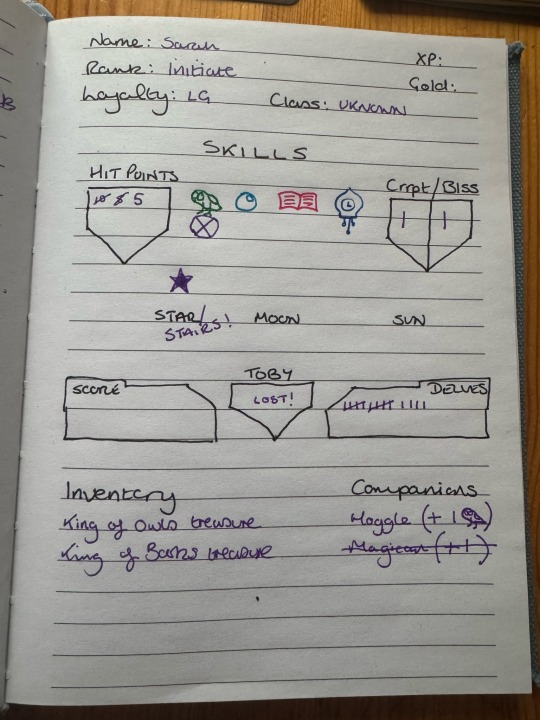 Name: Sarah
XP:
Rank: Initiate
Gold:
Loyalty: LG
Class: UKNOWN
SKILLS
HIT POINTS
Crrpt/Bliss
10 8 5
1 1
STAR/
STAIRS!
MOON
SUN
TOBY
SCORE
LOST!
DELVES
Inventory
Companions
King of Owls treasure
Hoggle (+ 1 )
King of Books treasure
Magician (+1)